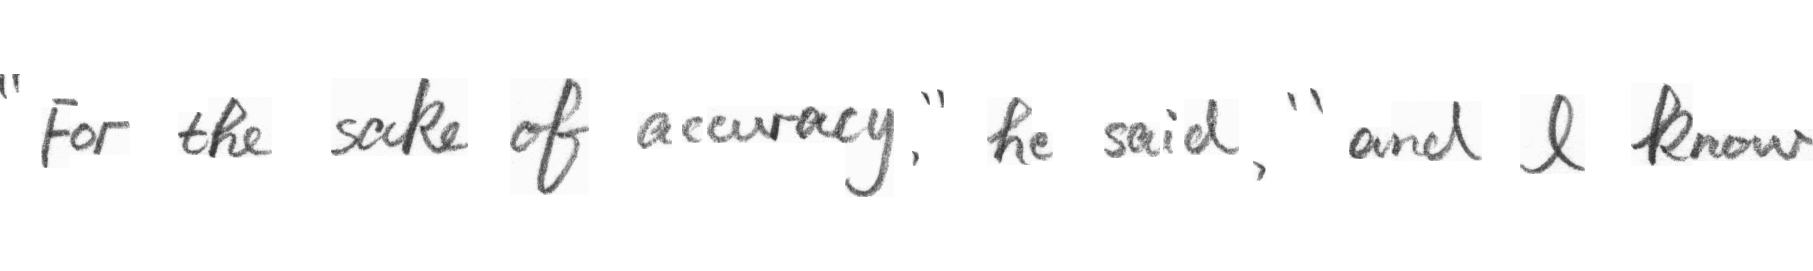 "For the sake of accuracy," he said, "and I know